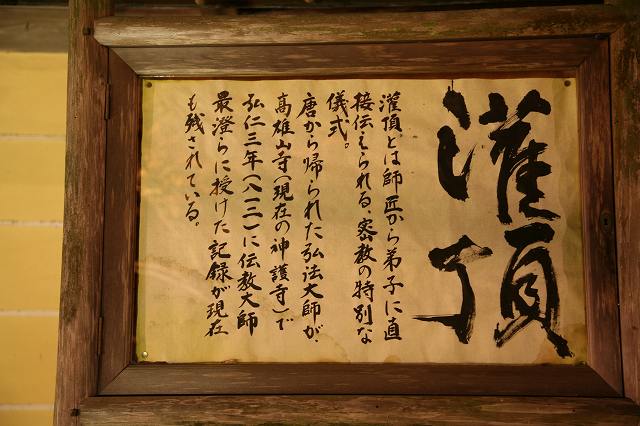 灌頂
灌頂とは師匠から弟子に直
接伝えられる、密教の特別な
儀式。
唐から帰られた弘法大師が、
高雄山寺(現在の神護寺)で
弘仁三年(八一二)に伝教大師
最澄らに授けた記録が現在
も残されている。